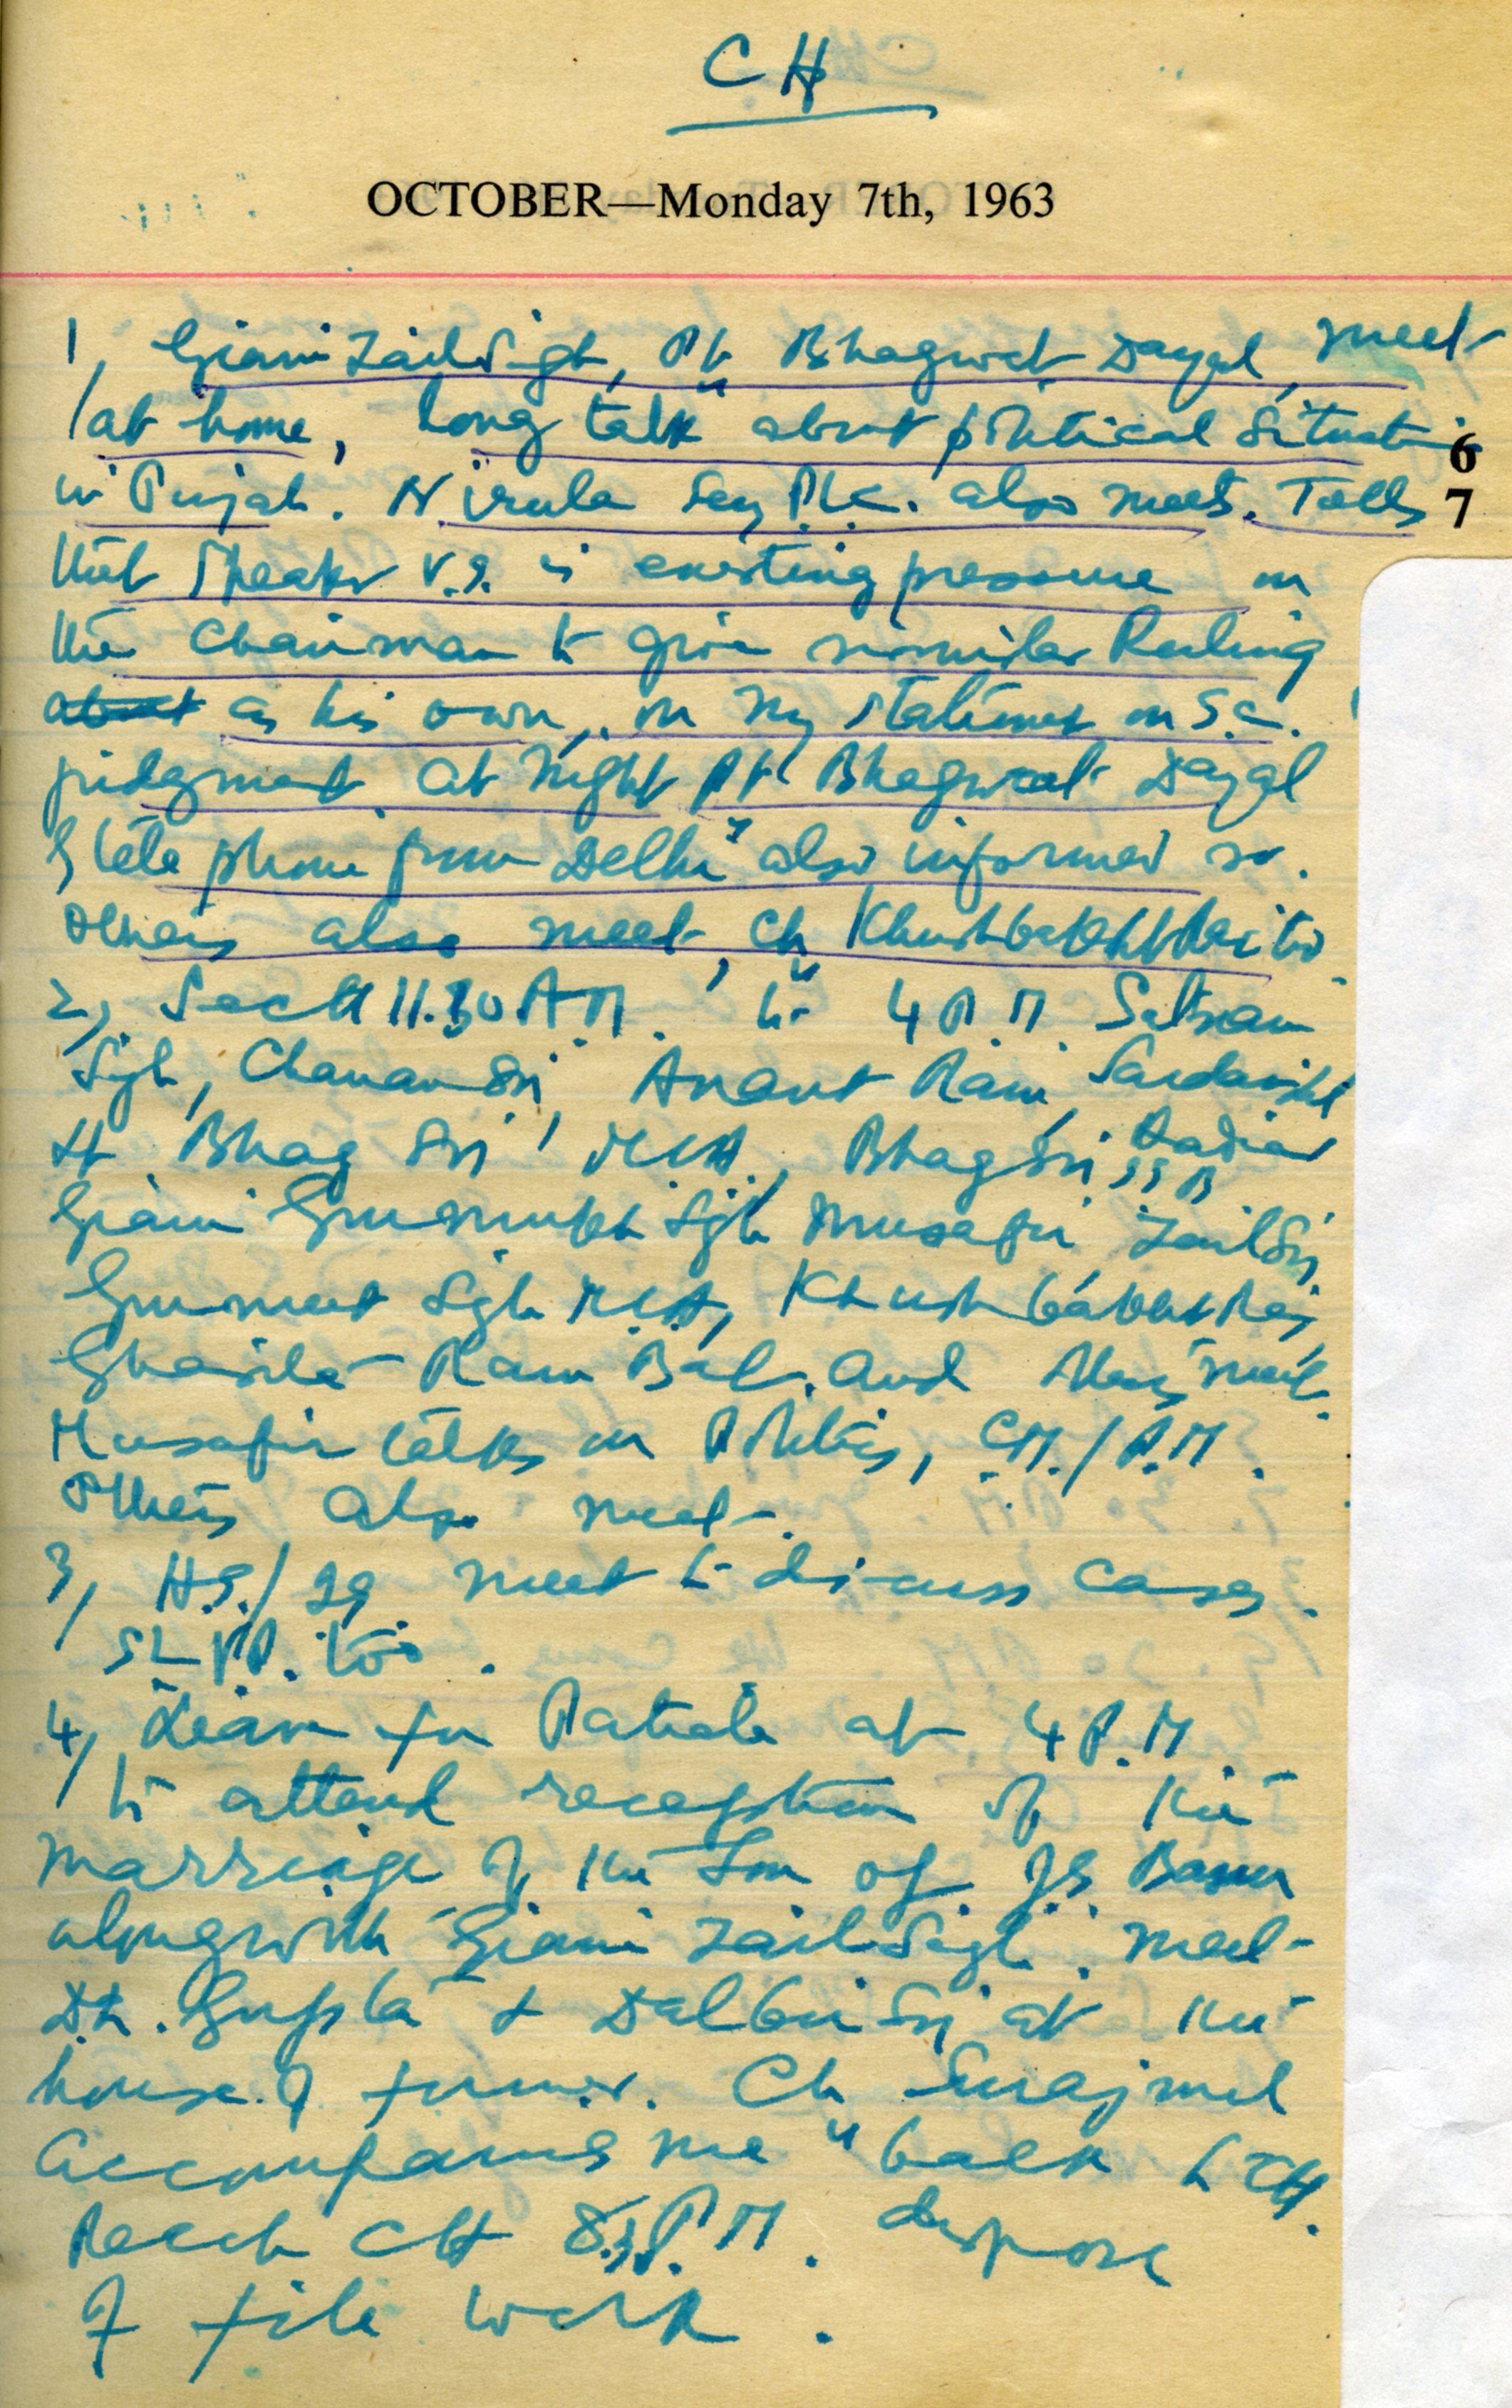 CH
OCTOBER—Monday 7th, 1963
1, Giani Zail Sigh, Pt Bhagwat Dayal, meet
at home, long talk about political Situation
6
in Punjab. Nirula Secy P.L.C. also meets. Tells
7
that Speaker V.S. is exerting pressure on
the Chairman to give similar Ruling
about as his own, on my statement on S.C.
judgment. at Night Pt Bhagwat Dayal
telephone from Delhi also informed so.
Others also meet, Ch Khushbakht Rai too.
2, Sectt 11.30 A.M. to 4 P.M. Satnam
Sigh, Chanan Sri, Anant Ram,
Bhag Sri, MLA, Bhag Sri,
Giani Gurmukh Sigh Musafir, Zail Sri,
Gurmeet Sigh MLA, Khushbakht Rai,
Ram Bal. and Many meet.
Musafir talks on Politics, C.M./P.M.
Others also meet.
3, H.S./IG meet to discuss cases.
too.
4, Leave for Patiala at 4 P.M.
to attend reception of the
marriage of the Son of
alongwith Giani Zail Sigh. meet
Dr. Gupta & Dalbir Sri at the
house of former. Ch Surajmal
accompanies me back to CH.
Reach CH P.M. dispose
of file work.